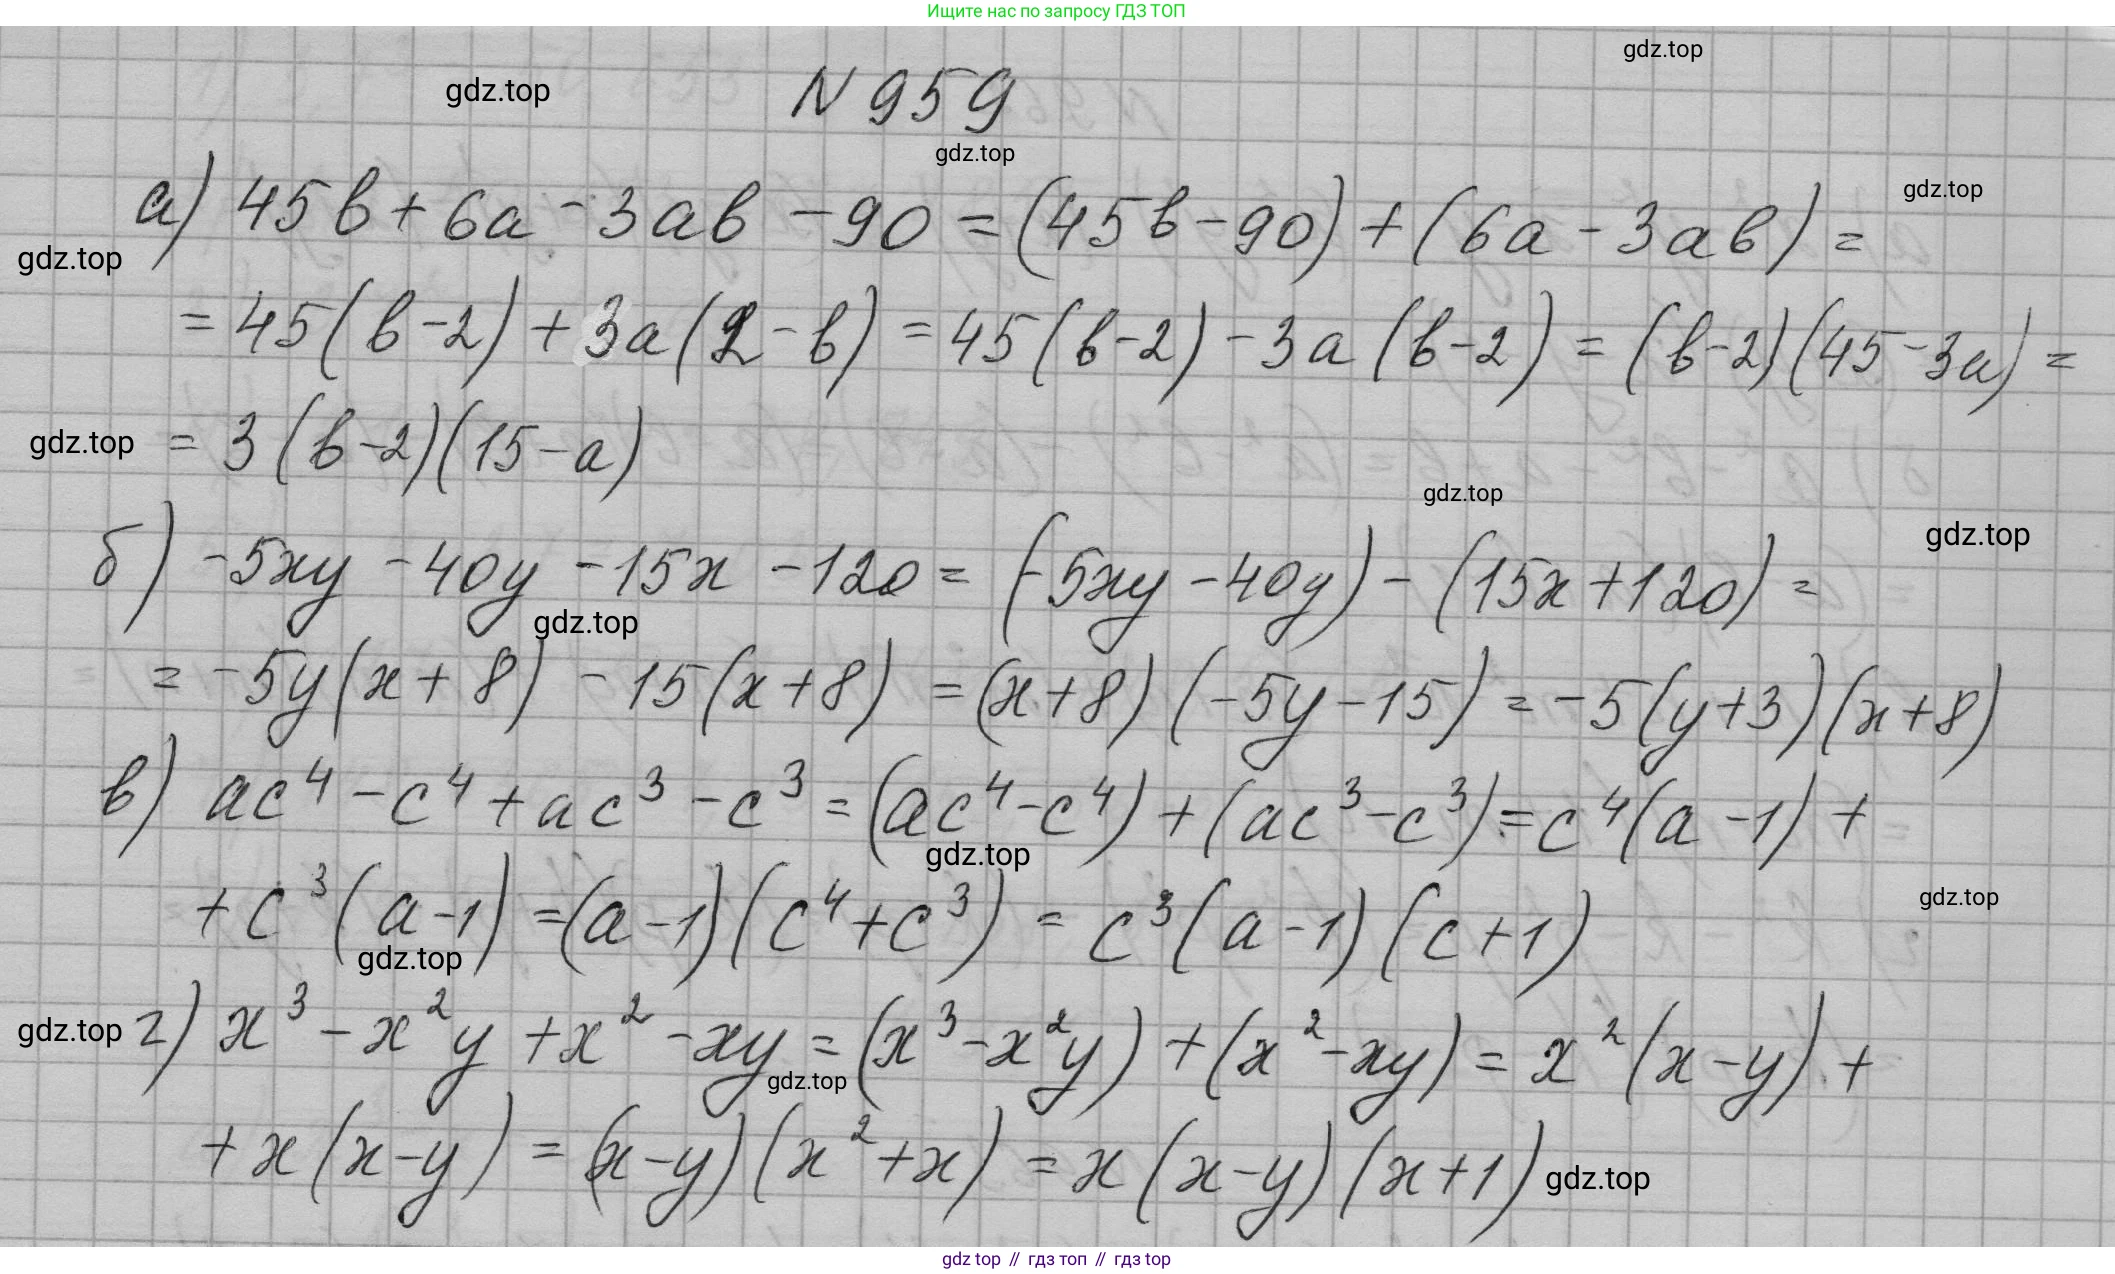 Ищите нас по запросу ГДЗ ТОП
gdz.top
gdz.top
N 959
gdz.top
а) 45в + 6а - 3ав - 90 = (45в - 90) + (6а - 3ав) =
gdz.top
gdz.top
= 45(в-2) + 3а(2-в) = 45(в-2) - 3а(в-2) = (в-2)(45-3а) =
gdz.top
= 3(в-2)(15-а)
gdz.top
gdz.top
б) -5xy - 40y - 15x - 120 = (-5xy - 40y) - (15x + 120) =
gdz.top
= -5y(x+8) - 15(x+8) = (x+8)(-5y-15) = -5(y+3)(x+8)
в) ac⁴ - c⁴ + ac³ - c³ = (ac⁴ - c⁴) + (ac³ - c³) = c⁴(a-1) +
gdz.top
+ c³(a-1) = (a-1)(c⁴+c³) = c³(a-1)(c+1)
gdz.top
gdz.top
gdz.top
г) x³ - x²y + x² - xy = (x³ - x²y) + (x² - xy) = x²(x-y) +
gdz.top
+ x(x-y) = (x-y)(x²+x) = x(x-y)(x+1)
gdz.top
gdz top // гдз топ // gdz top